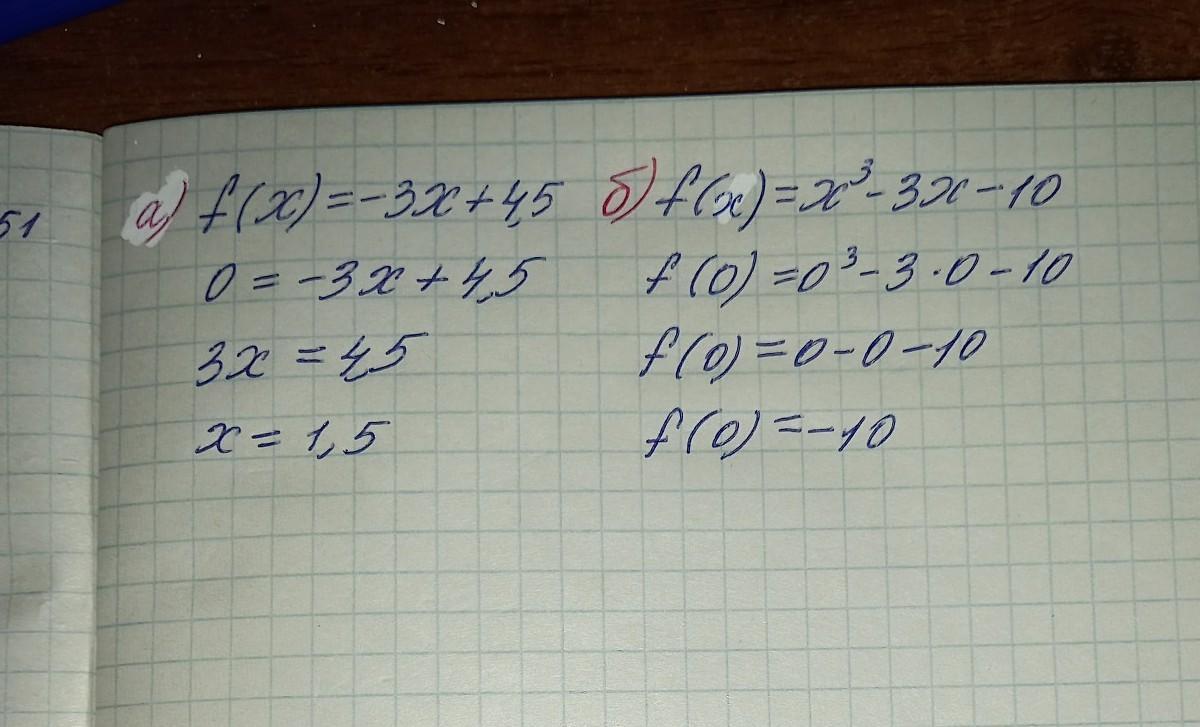 51
а) f(x)=-3x+4,5
0 = -3x + 4,5
3x = 4,5
x = 1,5
б) f(x)=x³-3x-10
f(0)=0³-3·0-10
f(0)=0-0-10
f(0)=-10